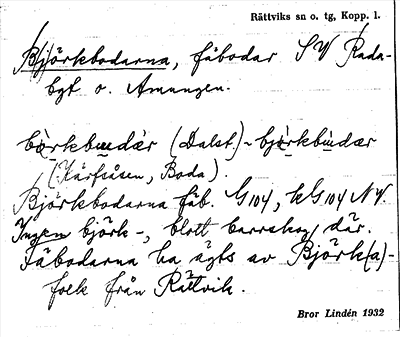 Rättviks sn o. tg, Kopp. l.
B(j)örkbodarna, fäbodar SV Rada-
by o. Amungen.
(Dalst.) ~
(Kärfsåsen, Boda).
Björkbodarna fäb. G 104, kG 104 NV.
Ingen björk-, blott barrskog där.
Fäbodarna ha ägts av Björk(a)-
folk från Rättvik.
Bror Lindén 1932